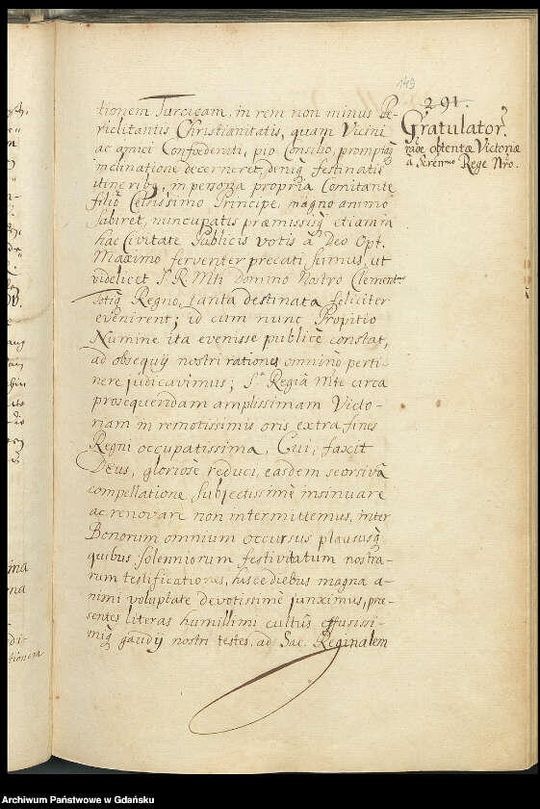 149
291.
Gratulator.
rae obtentæ Victoriæ
â Seren.mo Rege Nro.
tionem Turcicam, in rem non minus Pe-
riclitantis Christianitatis, quam Vicini
ac amici Confœderati, pio Consilio, promptaq
inclinatione decerneret, deniq festinatis
itineribq, in persona propria Comitante
filio Celsissimo Principe, magno animo
subiret, nuncupatis præmissisq etiam in
hac Civitate Publicis votis â Deo Opt.
Maximo ferventer precati sumus, ut
videlicet S. R. Mti Domino Nostro Clement.
Totiq Regno, tanta destinata feliciter
evenirent; id cum nunc Propitio
Numine ita evenisse publicè constat,
ad obsequij nostri rationes omninò perti-
nere judicavimus; S.a Regiâ Mte circa
prosequendam amplissimam Victo-
riam in remotissimis oris extra fines
Regni occupatissima, Cui, faxit
Deus, gloriosè reduci, easdem seorsivâ
compellatione subjectissimè insinuare
ac renovare non intermittemus, inter
Bonorum omnium occursus plaususq
quibus solenniorum festivitatum nostra-
rum testificationes, hisce diebus magna a-
nimi voluptate devotissimè junximus, præ-
sentes literas humillimi cultus effusissi-
miq gaudij nostri testes, ad Sac. Reginalem
Archiwum Państwowe w Gdańsku